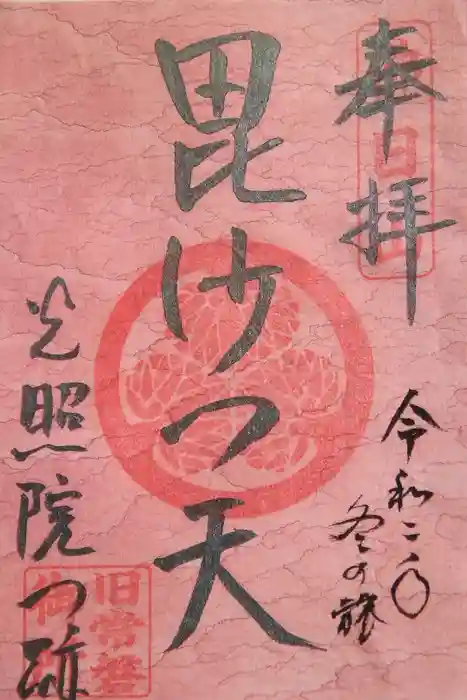 奉拝
令和二年
冬の旅
毘沙門天
光照院門跡
旧常盤
御所